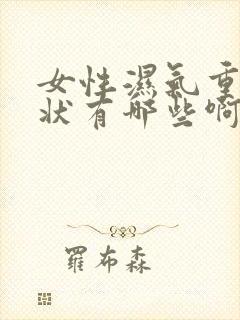 女性濕氣重
狀有哪些啊
羅布森